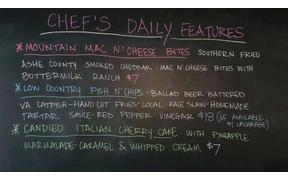 CHEF'S DAILY FEATURES
* MOUNTAIN MAC N' CHEESE BITES SOUTHERN FRIED
ASHE COUNTY SMOKED CHEDDAR MAC N' CHEESE BITES WITH
BUTTERMILK RANCH $7
* LOW COUNTRY FISH N' CHIPS - BALLAD BEER BATTERED
VA CATFISH - HAND CUT FRIES - LOCAL KALE SLAW - HOMEMADE
TARTAR SAUCE - RED PEPPER VINEGAR $18 (GF AVAILABLE
$1 UPCHARGE)
* CANDIED ITALIAN CHERRY CAKE WITH PINEAPPLE
MARMALADE - CARAMEL & WHIPPED CREAM $7